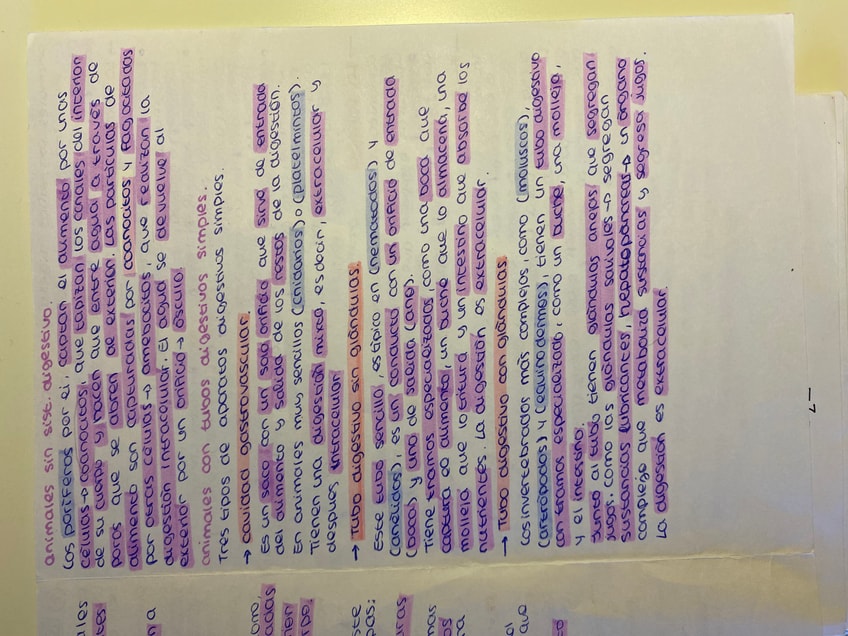 animales sin sist. digestivo.
Los poríferos por ej. captan el alimento por unas
células → coanocitos, que tapizan los canales del interior
de su cuerpo y hacen que entre agua a través de
poros que se abren de exterior. Las partículas de
alimento son capturadas por coanocitos y fagocitadas
por otras células → amebocitos, que realizan la
digestión intracelular. El agua se devuelve al
exterior por un orificio → ósculo.
animales con tubos digestivos simples.
Tres tipos de aparatos digestivos simples.
→ cavidad gastrovascular.
Es un saco con un solo orificio que sirve de entrada
del alimento y salida de los restos de la digestión.
En animales muy sencillos (cnidarios) o (platelmintos).
Tienen una digestión mixta, es decir, extracelular y
después intracelular
→ Tubo digestivo sin glándulas.
Este tubo sencillo, es típico en (nematodos) y
(anélidos), es un conducto con un orificio de entrada
(boca) y uno de salida (ano).
Tiene tramos especializados, como una boca que
captura do alimento, un buche que lo almacena, una
molleja que lo tritura y un intestino que absorbe los
nutrientes. La digestión es extracelular.
→ Tubo digestivo con glándulas.
Los invertebrados más complejos, como (moluscos),
(artrópodos) y (equinodermos), tienen un tubo digestivo
con tramos especializado, como un buche, una molleja,
y el intestino.
Junto al tubo tienen glándulas anejas que segregan
jugos. como las glándulas salivales → segregan
sustancias lubricantes, hepatopáncreas → un órgano
complejo que metaboliza sustancias y segrega jugos.
La digestión es extracelular.